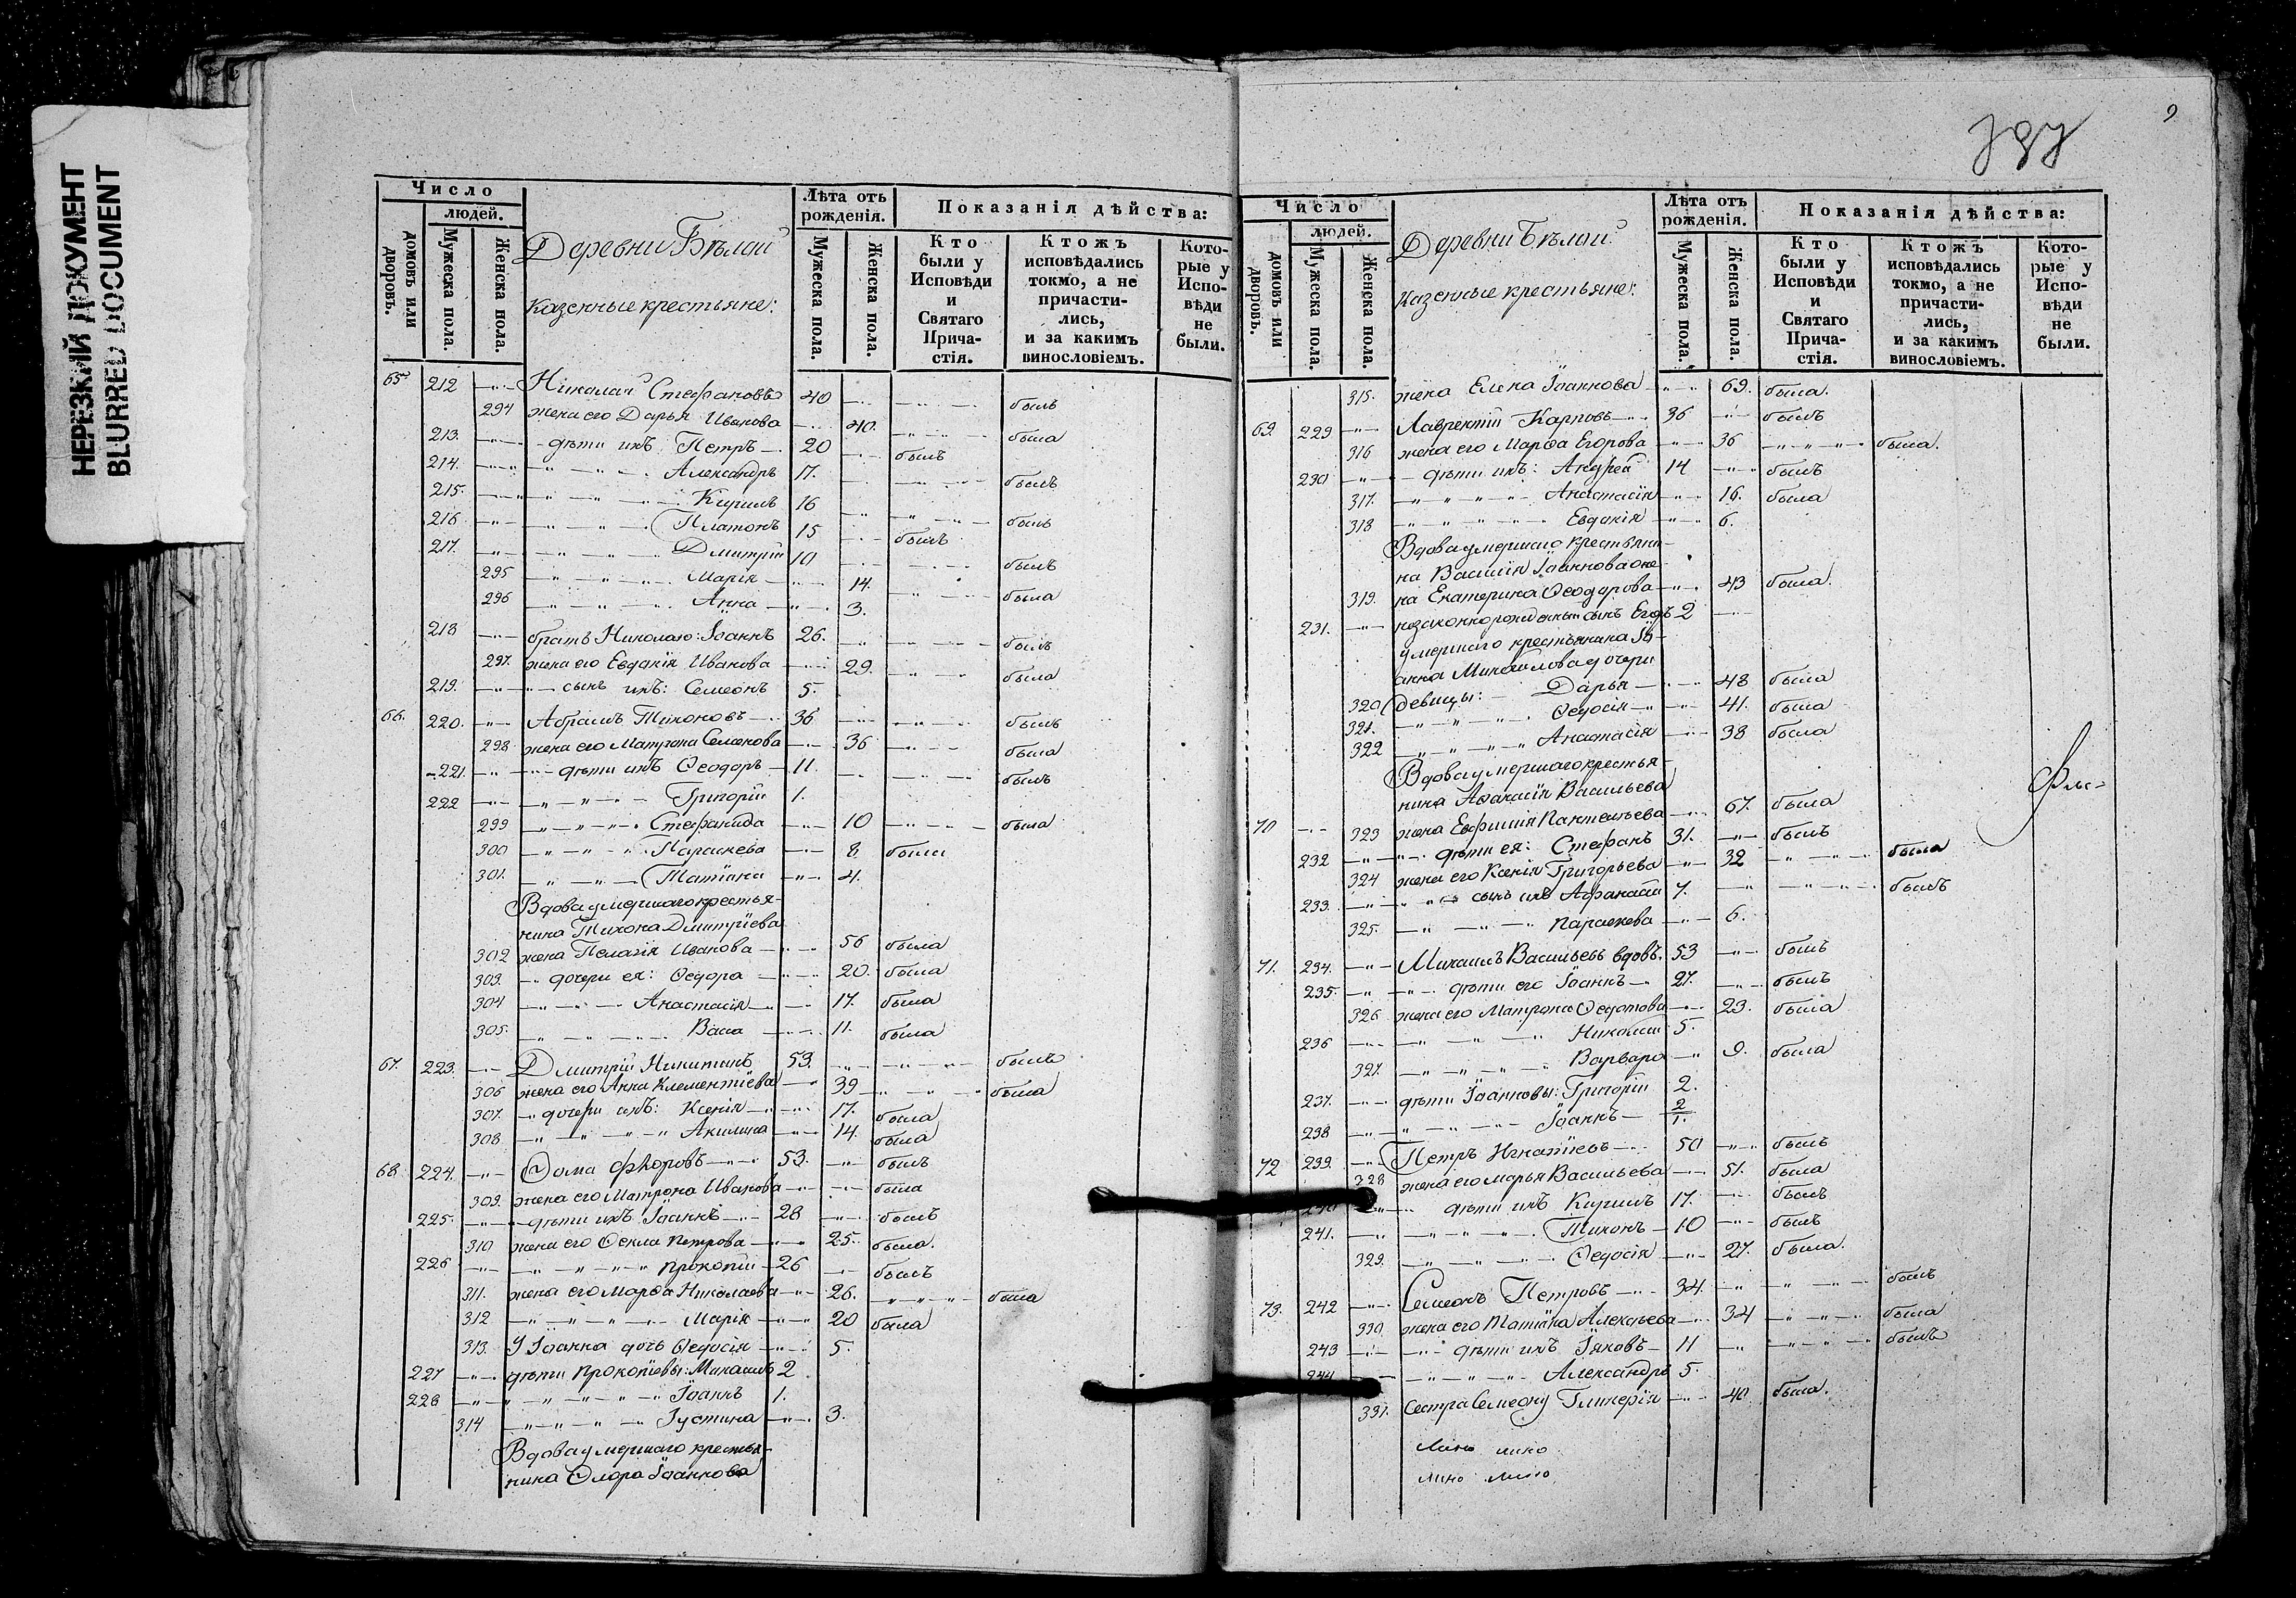 НЕРЕЗКИЙ ДОКУМЕНТ
BLURRED DOCUMENT
Число
людей.
домовъ или дворовъ.
Мужеска пола.
Женска пола.
Деревни Бѣлой
казенные крестьяне:
Лѣта отъ рожденія.
Мужеска пола.
Женска пола.
Показанія дѣйства:
Кто были у Исповѣди и Святаго Прича-стія.
Ктожъ исповѣдались токмо, а не причасти-лись, и за какимъ винословіемъ.
Кото-рые у Испо-вѣди не были.
65 212 Николай Стефановъ 40 былъ
294 жена его Дарья Иванова 40. была
213. дѣти ихъ Петръ 20 былъ
214. Александръ 17. былъ
215. Кирилъ 16 былъ
216 Платонъ 15 былъ
217. Дмитрій 10 былъ
295 Марія 14. была
296 Анна 3.
218 братъ Николаю: Іоаннъ 26. былъ
297. жена его Евдокія Иванова 29. была
219. сынъ ихъ: Семеонъ 5.
66. 220. Абрамъ Тихоновъ 36 былъ
298 жена его Матрона Семенова 36 была
221. дѣти ихъ Ѳеодоръ 11. былъ
222 Григорій 1.
299 Стефанида 10 была
300 Параскева 8. была
301. Татіана 4.
Вдова умершаго крестья-
нина Тихона Дмитріева
302 жена Пелагія Иванова 56 была
303. дочери ея: Ѳедора 20. была
304 Анастасія 17. была
305. Васа 11. была
67. 223. Дмитрій Никитинъ 53. былъ
306 жена его Анна Клементіева 39 была
307. дочери ихъ: Ксенія 17. была
308. Акилина 14. была
68. 224. Ѳома 53. былъ
309. жена его Матрона Иванова была
225. дѣти ихъ Іоаннъ 28 былъ
310 жена его Ѳекла Петрова 25. была.
226 Прокопій 26 былъ
311. жена его Марѳа Николаева 26. была
312 Марія 20 была
313. У Іоанна дочь Ѳедосія 5.
227 дѣти Прокопіевы: Михаилъ 2
228 Іоаннъ 1.
314 Іустина 3.
Вдова умершаго крестья-
нина Іоаннова
9
Число
людей.
домовъ или дворовъ.
Мужеска пола.
Женска пола.
Деревни Бѣлой
казенные крестьяне:
Лѣта отъ рожденія.
Мужеска пола.
Женска пола.
Показанія дѣйства:
Кто были у Исповѣди и Святаго Прича-стія.
Ктожъ исповѣдались токмо, а не причасти-лись, и за какимъ винословіемъ.
Кото-рые у Испо-вѣди не были.
315. жена Елена Іоаннова 69. была.
69. 229 Лаврентій Карповъ 36 былъ
316 жена его Марѳа Егорова 36 была.
230 дѣти ихъ: Андрей 14 былъ
317. Анастасія 16. была
318 Евдокія 6.
Вдова умершаго крестьяни-
на Василія Іоаннова же-
319. на Екатерина Ѳеодорова 43 была.
231. незаконнорожденный сынъ Егоръ 2
умершаго крестьянина Іо-
анна Михайлова дочери
320 девицы: Дарья 48 была
321. Ѳедосія 41. была
322 Анастасія 38 была
Вдова умершаго крестья-
нина Аѳанасія Васильева
70 323 жена Евфимія Пантельева 67. была
232 дѣти ея: Стефанъ 31. былъ
324 жена его Ксенія Григорьева 32 была
233. сынъ ихъ Афанасій 7. былъ
325. Параскева 6.
71. 234. Михаилъ Васильевъ вдовъ. 53 былъ
235. дѣти его Іоаннъ 27. былъ
326 жена его Матрона Ѳедотова 23. была
236 Николай 5.
327. Варвара 9. была
237. дѣти Іоанновы: Григорій 2.
238 Іоаннъ 2/1.
72 239. Петръ Игнатіевъ 50 былъ
328 жена его Марья Васильева 51. была
240 дѣти ихъ Кирилъ 17. былъ
241. Тихонъ 10 былъ
329. Ѳедосія 27. была.
73. 242 Семеонъ Петровъ 34. былъ
330. жена его Татіана Алексѣева 34 была
243 дѣти ихъ Іаковъ 11 былъ
244 Александръ 5.
331. Сестра Семеону Гликерія 40 была.